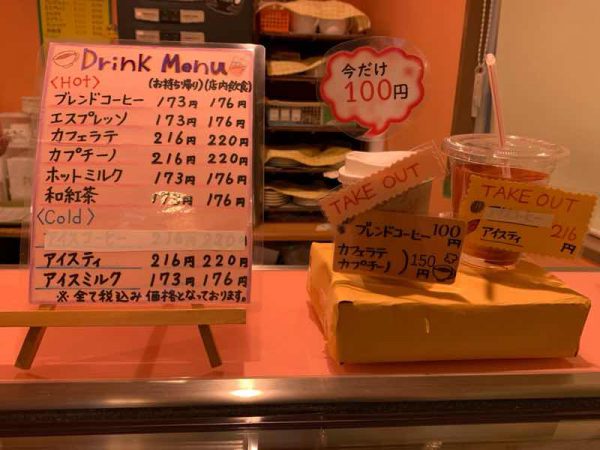 Drink Menu
<Hot> (お持ち帰り)(店内飲食)
ブレンドコーヒー 173円 176円
エスプレッソ 173円 176円
カフェラテ 216円 220円
カプチーノ 216円 220円
ホットミルク 173円 176円
和紅茶 173円 176円
<Cold>
アイスコーヒー 216円 220円
アイスティ 216円 220円
アイスミルク 173円 176円
※全て税込み価格となっております。
今だけ
100円
TAKE OUT
ブレンドコーヒー 100円
カフェラテ
カプチーノ)150円
TAKE OUT
アイスティ 216